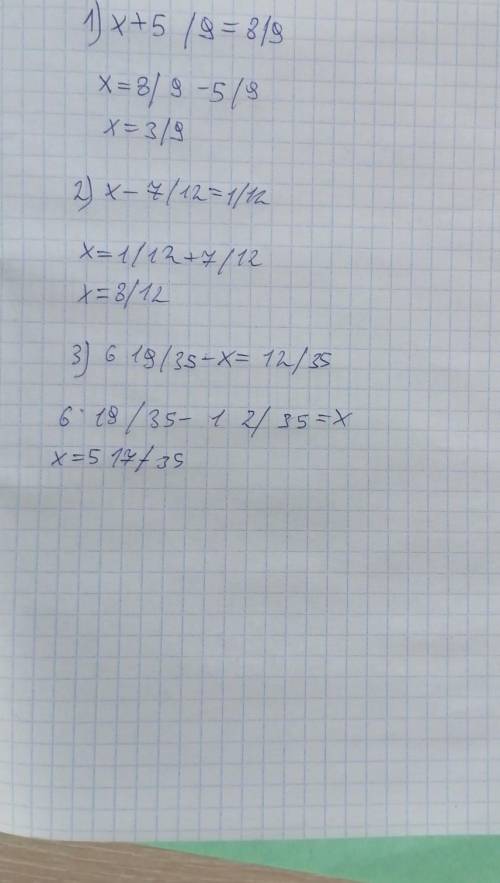 1) x+5 /9=8/9
x=8/9 -5/9
x=3/9
2) x-7/12=1/12
x=1/12+7/12
x=8/12
3) 6 19/35-x= 12/35
6 19/35- 1 2/35=x
x=5 17/35